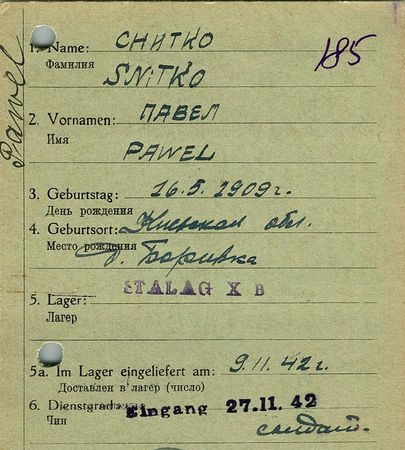 185
Pawel
1. Name: СНИТКО
Фамилия
SNiTKO
2. Vornamen: ПАВЕЛ
Имя
PAWEL
3. Geburtstag: 16.5.1909 г.
День рождения
4. Geburtsort: Киевская обл.
Место рождения
д. Боривка
STALAG X B
5. Lager:
Лагер
5a. Im Lager eingeliefert am: 9.11.42 г.
Доставлен в лагер (число)
6. Dienstgrad
Eingang 27.11.42
Чин
солдат.